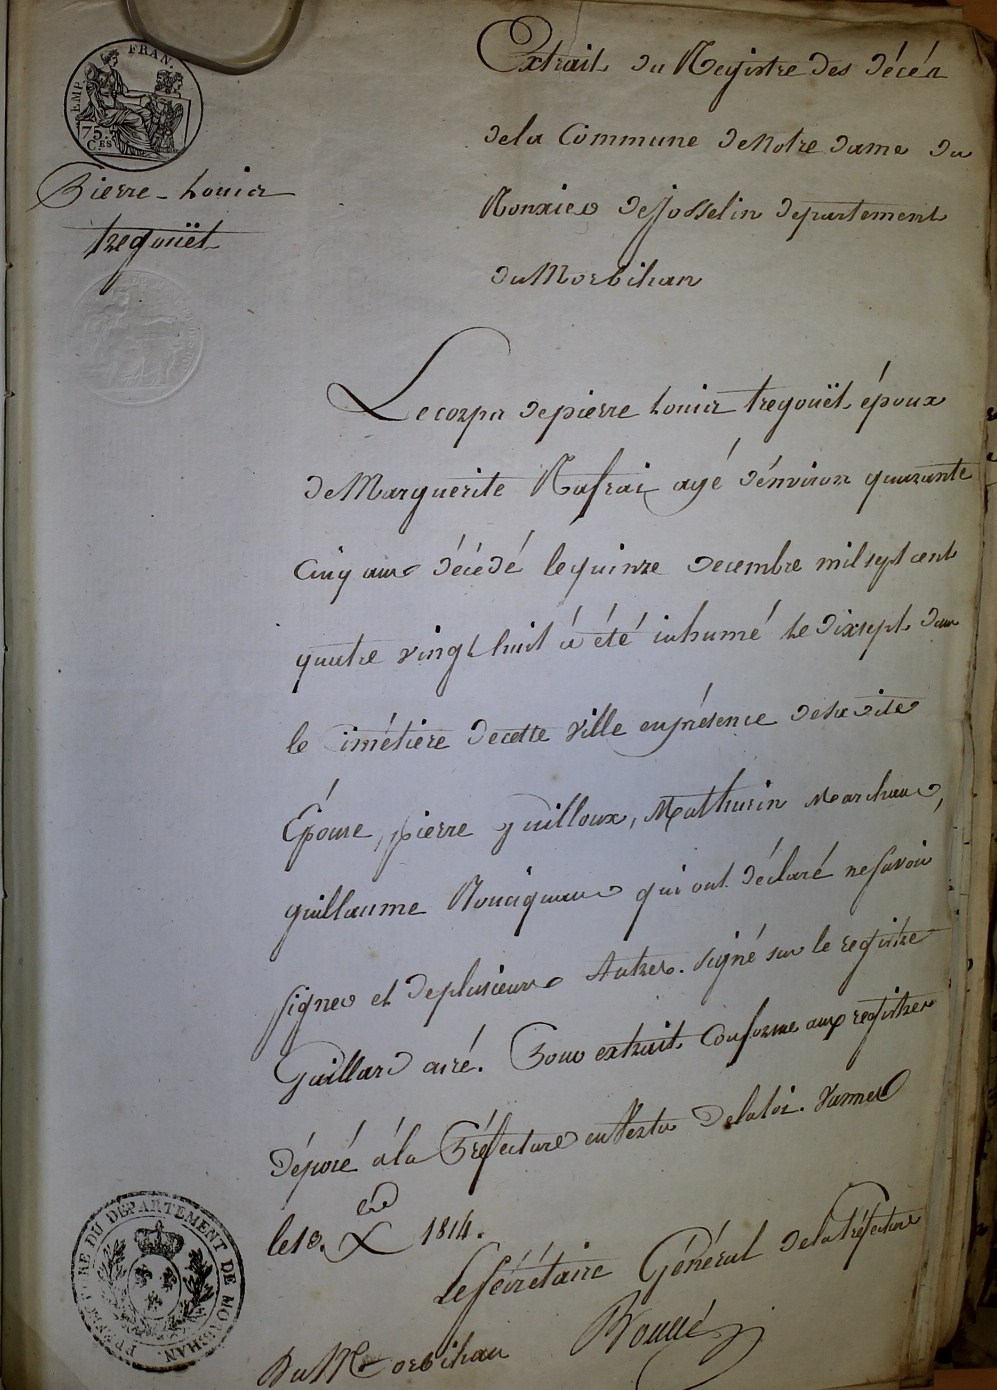 EMP. FRAN.
75.
C.ES
Pierre-Louis
tregouët
Extrait du Registre des décés
de la Commune de Notre dame du
Roncier de Josselin departement
du Morbihan
Le corps de pierre Louis tregouët époux
de Marguerite agé d'énviron quarante
Cinq ans décédé le quinze decembre mil sept cent
quatre vingt huit à été inhumé le dixsept dans
le Cimétiere de cette ville en présence de sa dite
Épouse, pierre guilloux, Mathurin Marchand,
guillaume qui ont déclaré ne savoir
signer et de plusieurs Autres. signé sur le registre
Guillard curé. Pour extrait Conforme aux registres
déposé à la Préfecture en Vertu de la loi. Vannes
le 10. Xere 1814.
Le Sécrétaire Général de la Préfecture
Du Morbihan
PREFECTURE DU DEPARTEMENT DE MORBIHAN